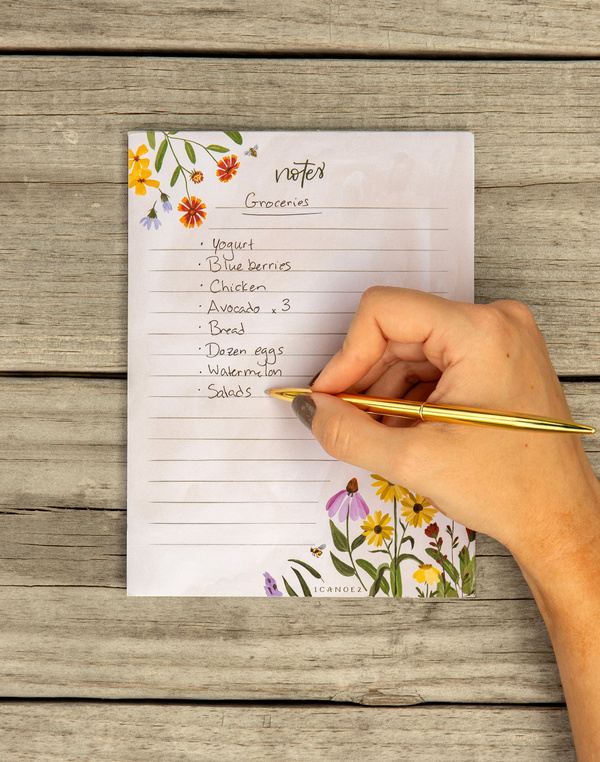 notes
Groceries
· Yogurt
· Blueberries
· Chicken
· Avocado x 3
· Bread
· Dozen eggs
· Watermelon
· Salads
1CANOE2